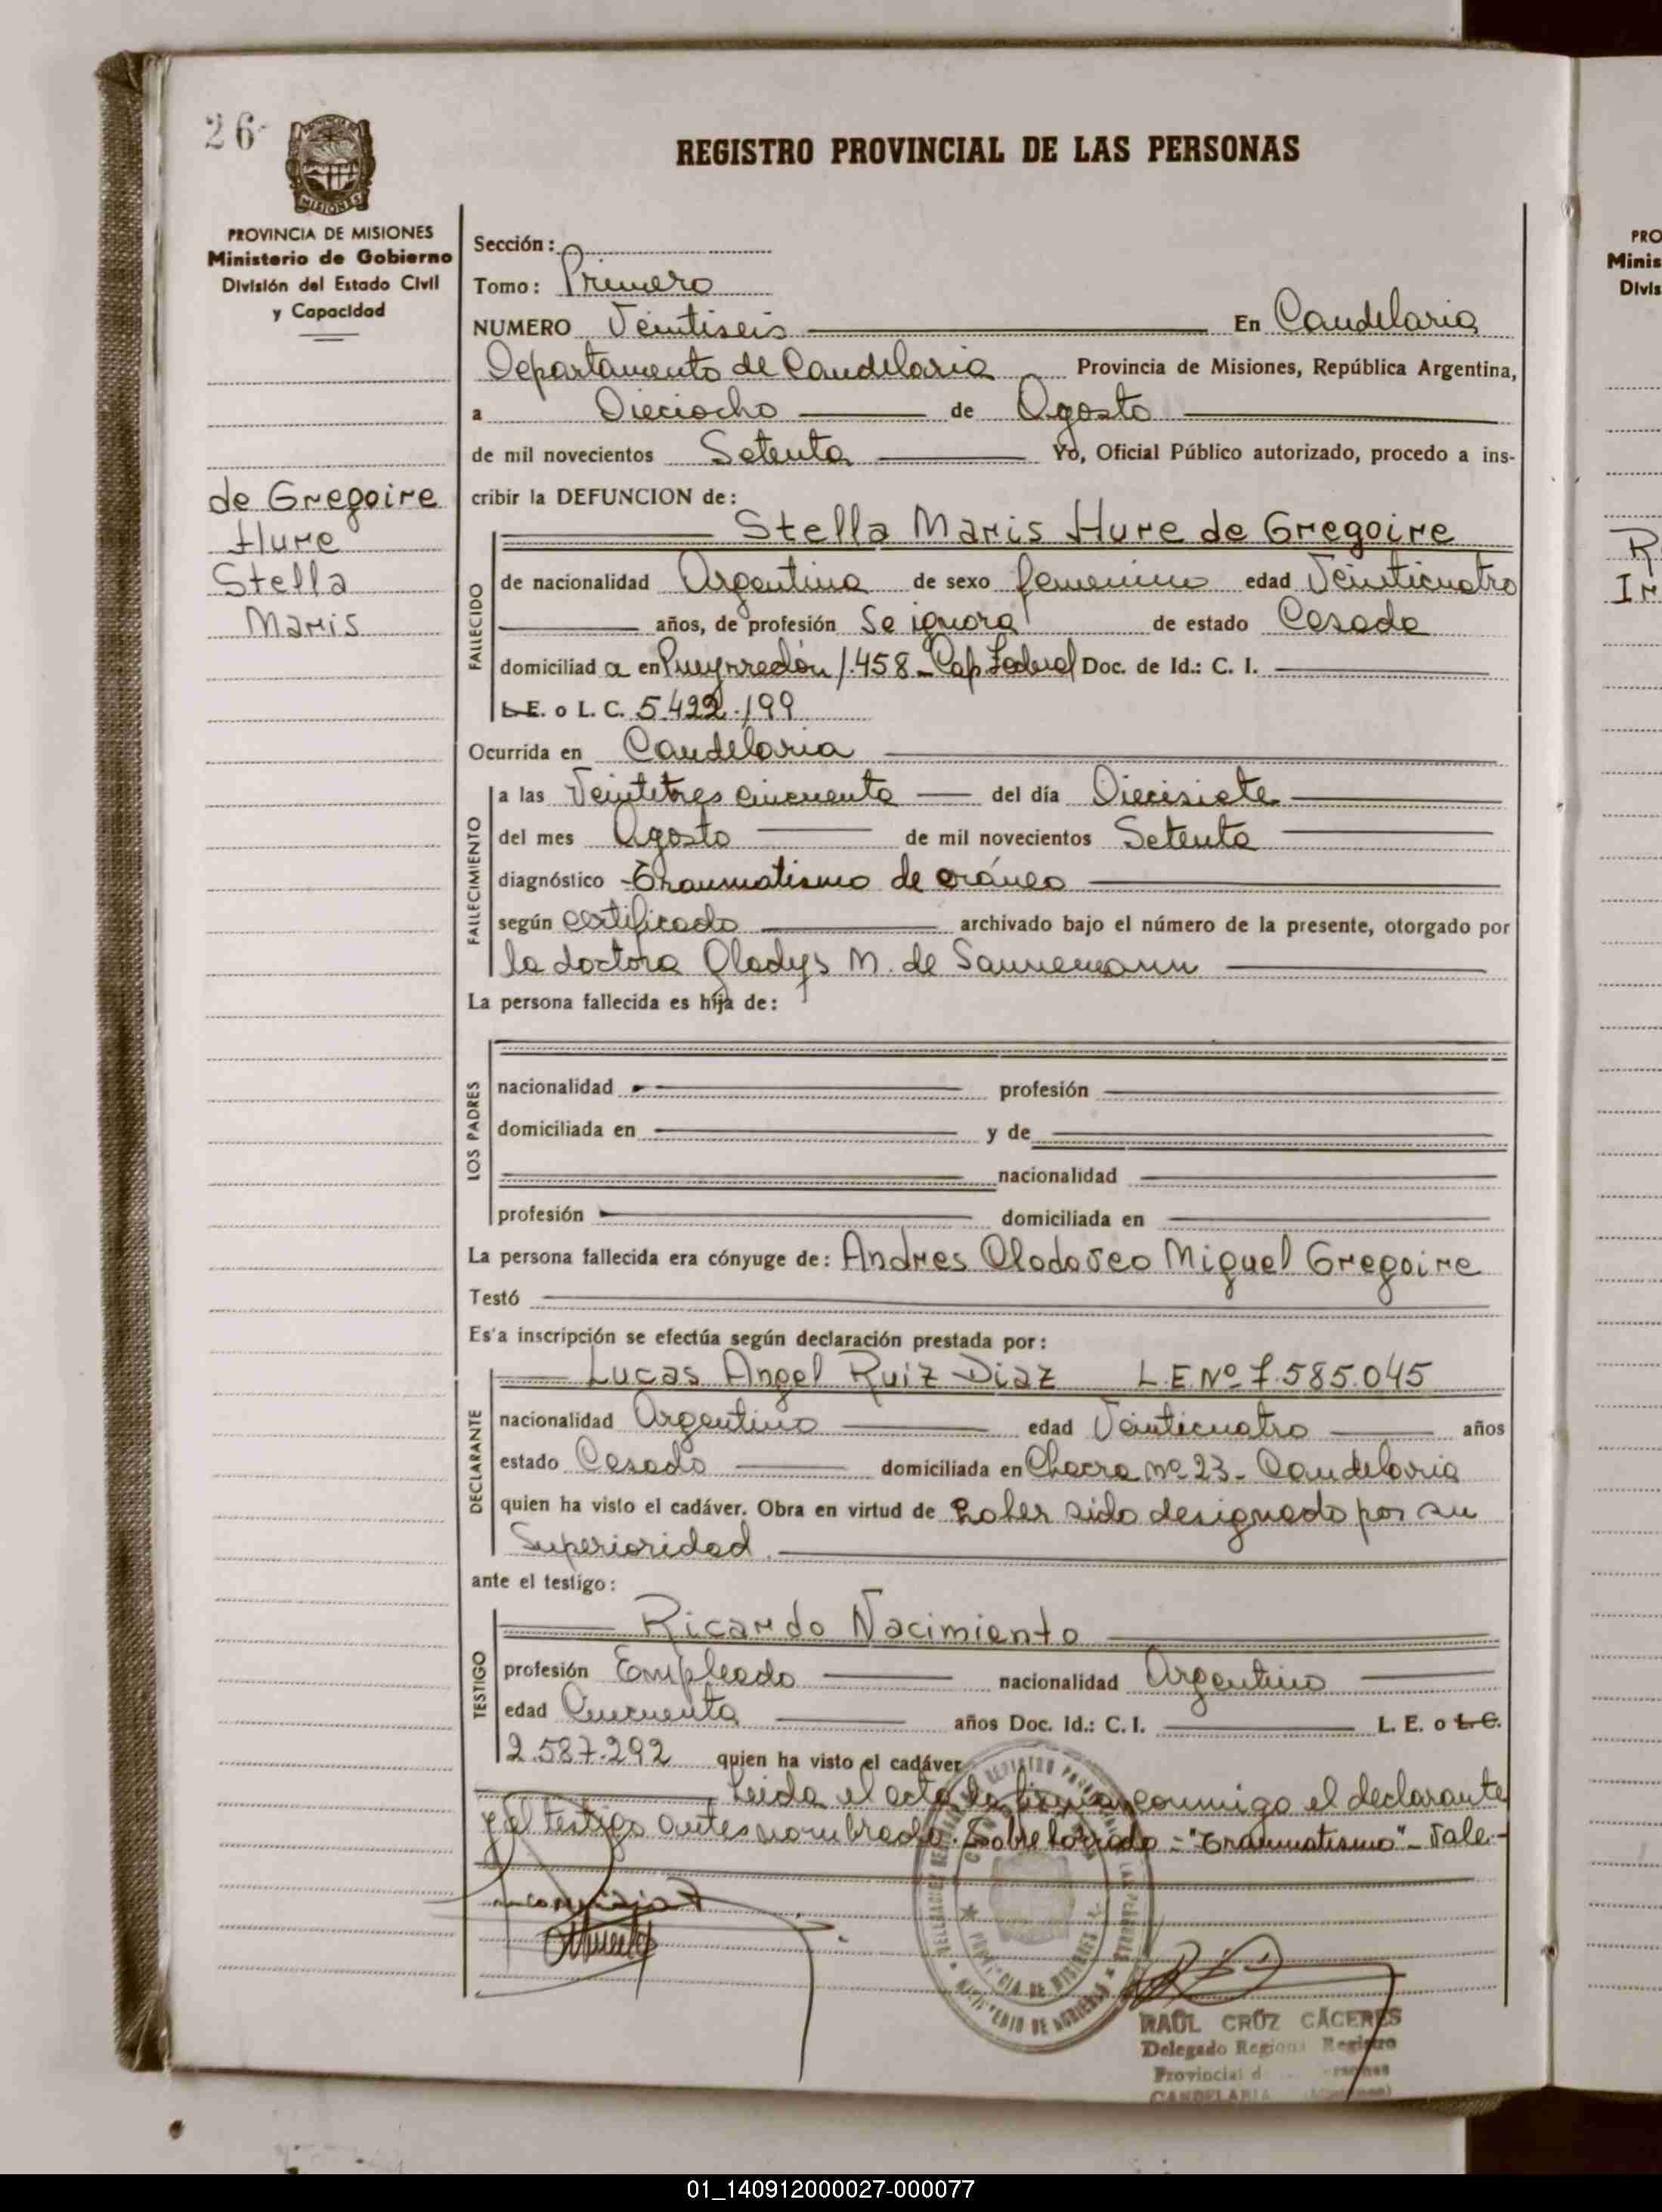 26
MISIONES
REGISTRO PROVINCIAL DE LAS PERSONAS
PROVINCIA DE MISIONES
Ministerio de Gobierno
División del Estado Civil
y Capacidad
de Gregoire
Hure
Stella
Maris
Sección:
Tomo: Primero
NUMERO Veintiseis En Candelaria
Departamento de Candelaria Provincia de Misiones, República Argentina,
a Dieciocho de Agosto
de mil novecientos Setenta Yo, Oficial Público autorizado, procedo a ins-
cribir la DEFUNCION de:
Stella Maris Hure de Gregoire
FALLECIDO
de nacionalidad Argentina de sexo femenino edad Veinticuatro
años, de profesión Se ignora de estado Casada
domiciliad a en Pueyrredón 1.458 - Cap Federal Doc. de Id.: C. I.
L. E. o L. C. 5.422.199
Ocurrida en Candelaria
FALLECIMIENTO
a las Veintitres cincuenta del día Diecisiete
del mes Agosto de mil novecientos Setenta
diagnóstico Traumatismo de cráneo
según certificado archivado bajo el número de la presente, otorgado por
la doctora Gladys M. de Sannemann
La persona fallecida es hija de:
LOS PADRES
nacionalidad profesión
domiciliada en y de
nacionalidad
profesión domiciliada en
La persona fallecida era cónyuge de: Andres Clodoveo Miguel Gregoire
Testó
Es'a inscripción se efectúa según declaración prestada por:
Lucas Angel Ruiz Diaz L.E.Nº 7.585.045
DECLARANTE
nacionalidad Argentino edad Veinticuatro años
estado Casado domiciliada en Chacra nº 23 - Candelaria
quien ha visto el cadáver. Obra en virtud de haber sido designado por su
Superioridad.
ante el testigo:
Ricardo Nacimiento
TESTIGO
profesión Empleado nacionalidad Argentino
edad Cincuenta años Doc. Id.: C. I. L. E. o L. C.
2.587.292 quien ha visto el cadáver
Leida el acta la firman conmigo el declarante
y el testigo antes nombrado. Sobre borrado = "Traumatismo" - Vale.-
PROVINCIA DE MISIONES
MINISTERIO DE GOBIERNO
RAUL CRUZ CACERES
Delegado Regional Registro
Provincial d
CANDELARIA
PRO
Minis
Divis
R
Ir
01_140912000027-000077